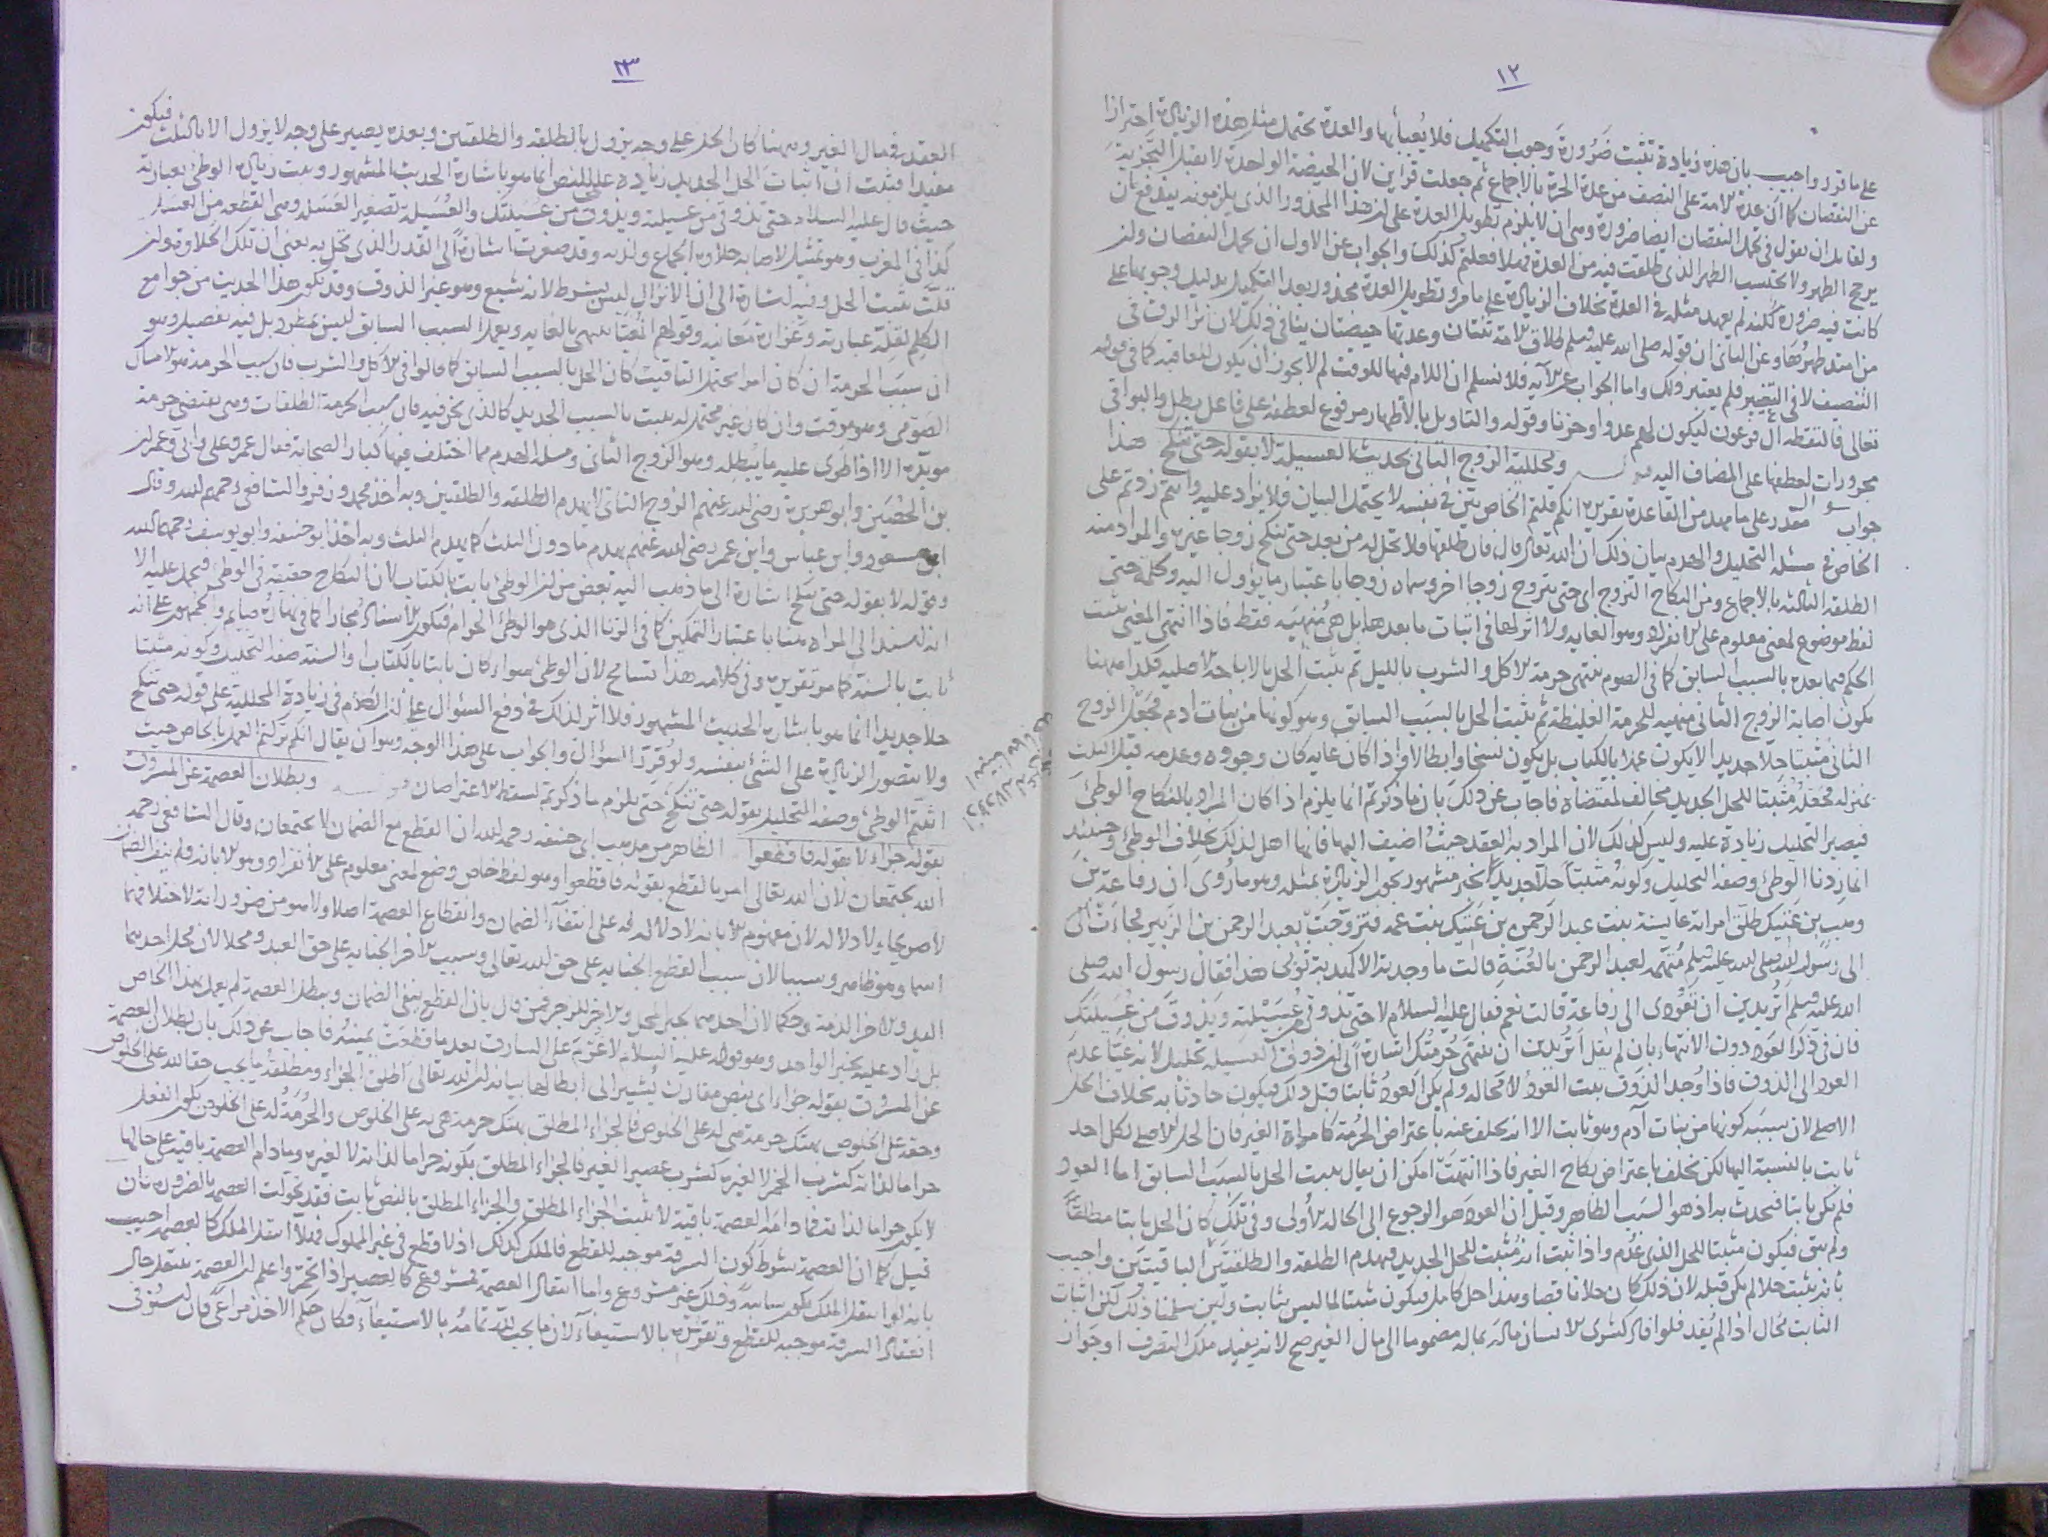 ١٢
على ما قرر واجيب بان هذه زيادة تثبت ضرورة وجوب التكميل فلا يُعبأ بها والعدة تحتمل مثل هذه الزيادة احترازا
عن النقصان كما ان عدة الامة على النصف من عدة الحرة بالاجماع ثم جعلت قرأين لان الحيضة الواحدة لا تقبل التجزية
ولقايل ان يقول في تحمل النقصان ايضا ضرورة وهي ان لا يلزم تطويل العدة على ان هذا المحذور الذي يلزمونه يندفع بان
الطهر ولا يحتسب الطهر الذي طلقت فيه من العدة فهلا فعلتم كذلك والجواب عن الاول ان تحمل النقصان وان
كانت فيه ضرورة لكنه لم يعهد مثله في العدة بخلاف الزيادة على ما مر وتطويل العدة محذور بعد التكميل بدليل وجوبها على
من امتد طهرها وعن الثاني ان قوله صلى الله عليه وسلم طلاق الامة ثنتان وعدتها حيضتان ينافي ذلك لان اثر الرق في
التنصيف لا في التغيير فلم يعتبر ذلك واما الجواب عن الآية فلا نسلم ان اللام فيها للوقت لم لا يجوز ان يكون للعاقبة كما في قوله
تعالى فالتقطه آل فرعون ليكون لهم عدوا وحزنا وقوله والتاويل بالاطهار مرفوع لعطفه على فاعل بطل والبواقي
مجرورات لعطفها على المضاف اليه قوله ومحللية الزوج الثاني بحديث العسيلة لا بقوله حتى تنكح هذا
جواب سوال مقدر على ما مهد من القاعدة تقريره انكم قلتم الخاص بين في نفسه لا يحتمل البيان فلا يزاد عليه وانتم زدتم على
الخاص في مسئلة التحليل والهدم بيان ذلك ان الله تعالى قال فان طلقها فلا تحل له من بعد حتى تنكح زوجا غيره والمراد منه
الطلقة الثالثة بالاجماع ومن النكاح التزوج اي حتى تتزوج زوجا اخر وسماه زوجا باعتبار ما يؤول اليه وكلمة حتى
لفظ موضوع لمعنى معلوم على الانفراد وهو الغاية ولا اثر لها في اثبات ما بعدها بل هي مُنهية فقط فاذا انتهى المغيّى يثبت
الحكم فيما بعده بالسبب السابق كما في الصوم تنتهي حرمة الاكل والشرب بالليل ثم يثبت الحل بالاباحة الاصلية فكذا ههنا
يكون اصابة الزوج الثاني منهية للحرمة الغليظة ثم يثبت الحل بالسبب السابق وهو كونها من بنات ادم فجعل الزوج
الثاني مثبتا حلا جديدا لا يكون عملا بالكتاب بل يكون نسخا وابطالا واذا كان غاية كان وجوده وعدمه قبل الثلث
بمنزلة فجعله مثبتا للحل الجديد مخالف لمقتضاه فاجاب عن ذلك بان ما ذكرتم انما يلزم اذا كان المراد بالنكاح الوطئ
فيصير التحليل زيادة عليه وليس كذلك لان المراد به العقد حيث اضيف اليها فانها اهل لذلك بخلاف الوطئ وحينئذ
انما زدنا الوطئ وصفة التحليل وكونه مثبتا حلا جديدا بخبر مشهور يجوز الزيادة بمثله وهو ما روي ان رفاعة بن
وهب بن عتيك طلق امراته عايشة بنت عبد الرحمن بن عتيك بنت عمه فتزوجت بعبد الرحمن بن الزبير فجاءت
الى رسول الله صلى الله عليه وسلم متهمة لعبد الرحمن بالعُنّة قالت ما وجدته الا كهدبة ثوبي هذا فقال رسول الله صلى
الله عليه وسلم اتريدين ان تعودى الى رفاعة قالت نعم فقال عليه السلام لا حتى تذوقي عُسَيلته ويذوق من عُسَيلتك
فان في ذكر العود دون الانتهاء بان لم يقل اتريدين ان تنتهي حُرمتك اشارة الى ان ذوق العسيلة تحليل لانه غيّا عدم
العود الى الذوق فاذا وُجد الذوق يثبت العود لا محالة ولم يكن العود ثابتا قبل ذلك فيكون حادثا به بخلاف الحل
الاصلي لان سببه كونها من بنات آدم وهو ثابت الا انه تخلف عنه باعتراض الحرمة كما مراة الغير فان الحل الاصلي لكل احد
ثابت بالنسبة اليها لكن تخلف باعتراض نكاح الغير فاذا انتهت امكن ان يقال يثبت الحل بالسبب السابق اما العود
فلم يكن ثابتا فيحدث به اذ هو السبب الظاهر وقيل ان العود هو الرجوع الى الحالة الاولى وفي تلك كان الحل ثابتا مطلقا
ولم يبق فيكون مثبتا للحل الذي عُدم واذا ثبت انه مُثبت للحل الجديد فيهدم الطلقة والطلقتين الباقيتين واجيب
بانه يثبت حلا لم يكن قبله لان ذلك كان حلا ناقصا وهذا حل كامل فيكون مثبتا لما ليس بثابت ولئن سلمنا ذلك لكن اثبات
الثابت محال اذا لم يُفد فلو افاد كشرى الانسان ماله بماله مضموما الى مال الغير صح لانه يفيد ملك التصرف او جواز
٢٣
العقد في مال الغير وههنا كان الحل على وجه يزول بالطلقة والطلقتين وبعده يصير على وجه لا يزول الا بالثلث فيكون
مفيدا فثبت ان اثبات الحل الجديد زيادة على النص انما هو باشارة الحديث المشهور وثبت زيادة الوطئ بعبارته
حيث قال عليه السلام حتى تذوقي من عسيلته ويذوق من عسيلتك والعُسَيلة تصغير العَسَلة وهي القطعة من العسل
كذا في المغرب وهو تمثيل لاصابة حلاوة الجماع ولذته وقد صغرت اشارة الى القدر الذي تحل به يعني ان تلك الحلاوة وان
قلّت تثبت الحل وفيه اشارة الى ان الانزال ليس بشرط لانه شبع وهو غير الذوق وقد يكون هذا الحديث من جوامع
الكلم لقلة عبارته وغزارة معانيه وقولهم المُغيّا ينتهي بالغاية ويعمل السبب السابق ليس بمطرد بل فيه تفصيل وهو
ان سبب الحرمة ان كان امرا يحتمل التاقيت كان الحل بالسبب السابق كما قالوا في الاكل والشرب فان سبب الحرمة هو الامساك
الصومي وهو موقت وان كان غير محتمل له يثبت بالسبب الجديد كالذي نحن فيه فان سبب الحرمة الطلقات وهي تقتضي حرمة
موبّدة الا اذا طرى عليه ما يُبطله وهو الزوج الثاني ومسئلة الهدم مما اختلف فيها كبار الصحابة فقال عمر وعلي وابي وعمران
بن الحُصَين وابو هريرة رضي الله عنهم الزوج الثاني لا يهدم الطلقة والطلقتين وبه اخذ محمد وزفر والشافعي رحمهم الله وقال
ابن مسعود وابن عباس وابن عمر رضي الله عنهم يهدم ما دون الثلث كما يهدم الثلث وبه اخذ ابو حنيفة وابو يوسف رحمهما الله
وقوله لا بقوله حتى تنكح اشارة الى ما ذهب اليه بعض من ان الوطئ ثابت بالكتاب لان النكاح حقيقة في الوطئ فيحمل عليه الا
انه اسند الى المراة هنا باعتبار التمكين كما في الزنا الذي هو الوطئ الحرام فيكون الاسناد مجازا كما في نهاره صايم والجمهور على انه
ثابت بالسنة كما هو تقريره وفي كلامه هذا تسامح لان الوطئ سواء كان ثابتا بالكتاب او السنة صفة التحليل وكونه مثبتا
حلا جديدا انما هو باشارة الحديث المشهور فلا اثر لذلك في دفع السؤال على ان الكلام في زيادة المحللية على قوله حتى تنكح
ولا يتصور الزيادة على الشئ بنفسه ولو قُرر السؤال والجواب على هذا الوجه وهو ان يقال انكم تركتم العمل بالخاص حيث
اثبتم الوطئ وصفة التحليل بقوله حتى تنكح حتى يلزم ما ذكرتم لسقط الاعتراضان قوله وبطلان العصمة عن المسروق
بقوله جزاء لا بقوله فاقطعوا الظاهر من مذهب ابي حنيفة رحمه الله ان القطع مع الضمان لا يجتمعان وقال الشافعي رحمه
الله يجتمعان لان الله تعالى امر بالقطع بقوله فاقطعوا وهو لفظ خاص وضع لمعنى معلوم على الانفراد وهو الابانة ولم ينف الضمان
لا صريحا ولا دلالة لان مفهوم الابانة لا دلالة له على انتفاء الضمان وانقطاع العصمة اصلا ولا هو من ضروراته لاختلافهما
اسما وهو ظاهر وسببا لان سبب القطع الجناية على حق الله تعالى وسبب الاخر الجناية على حق العبد ومحلا لان محل احدهما
اليد والاخر الذمة وحكما لان احدهما لجبر المحل والاخر للزجر فمن قال بان القطع ينفي الضمان ويبطل العصمة لم يعمل بهذا الخاص
بل زاد عليه بخبر الواحد وهو قوله عليه السلام لا غرم على السارق بعد ما قطعت يمينه فاجاب عن ذلك بان بطلان العصمة
عن المسروق بقوله جزاء اي بنص مقارن يُشير الى ابطالها بيانه ان الله تعالى اطلق الجزاء ومطلقه ما يجب حقا لله على الخلوص
وحقه على الخلوص بهتك حرمة هي له على الخلوص فالجزاء المطلق بهتك حرمة هي له على الخلوص والحُرمة له على الخلوص بكون الفعل
حراما لذاته كشرب الخمر لا لغيره كشرب عصير الغير فالجزاء المطلق بكونه حراما لذاته لا لغيره وما دام العصمة باقية على حالها
لا يكون حراما لذاته فما دامت العصمة باقية لا يثبت الجزاء المطلق والجزاء المطلق بالنص ثابت فقد تحولت العصمة بالضرورة فان
قيل كما ان العصمة شرط كون السرقة موجبة للقطع فالملك كذلك اذ لا قطع في غير المملوك فهلا انتقل الملك كالعصمة اجيب
بانه لو انتقل الملك يكون سائبة وذلك غير مشروع واما انتقال العصمة فمشروع كالعصير اذا تخمر واعلم ان العصمة ينتقل حال
انعقاد السرقة موجبة للقطع وتقرره بالاستيفاء لان ما يجب لله تمامه بالاستيفاء فكان حكم الاخذ مراعى فان استوفي